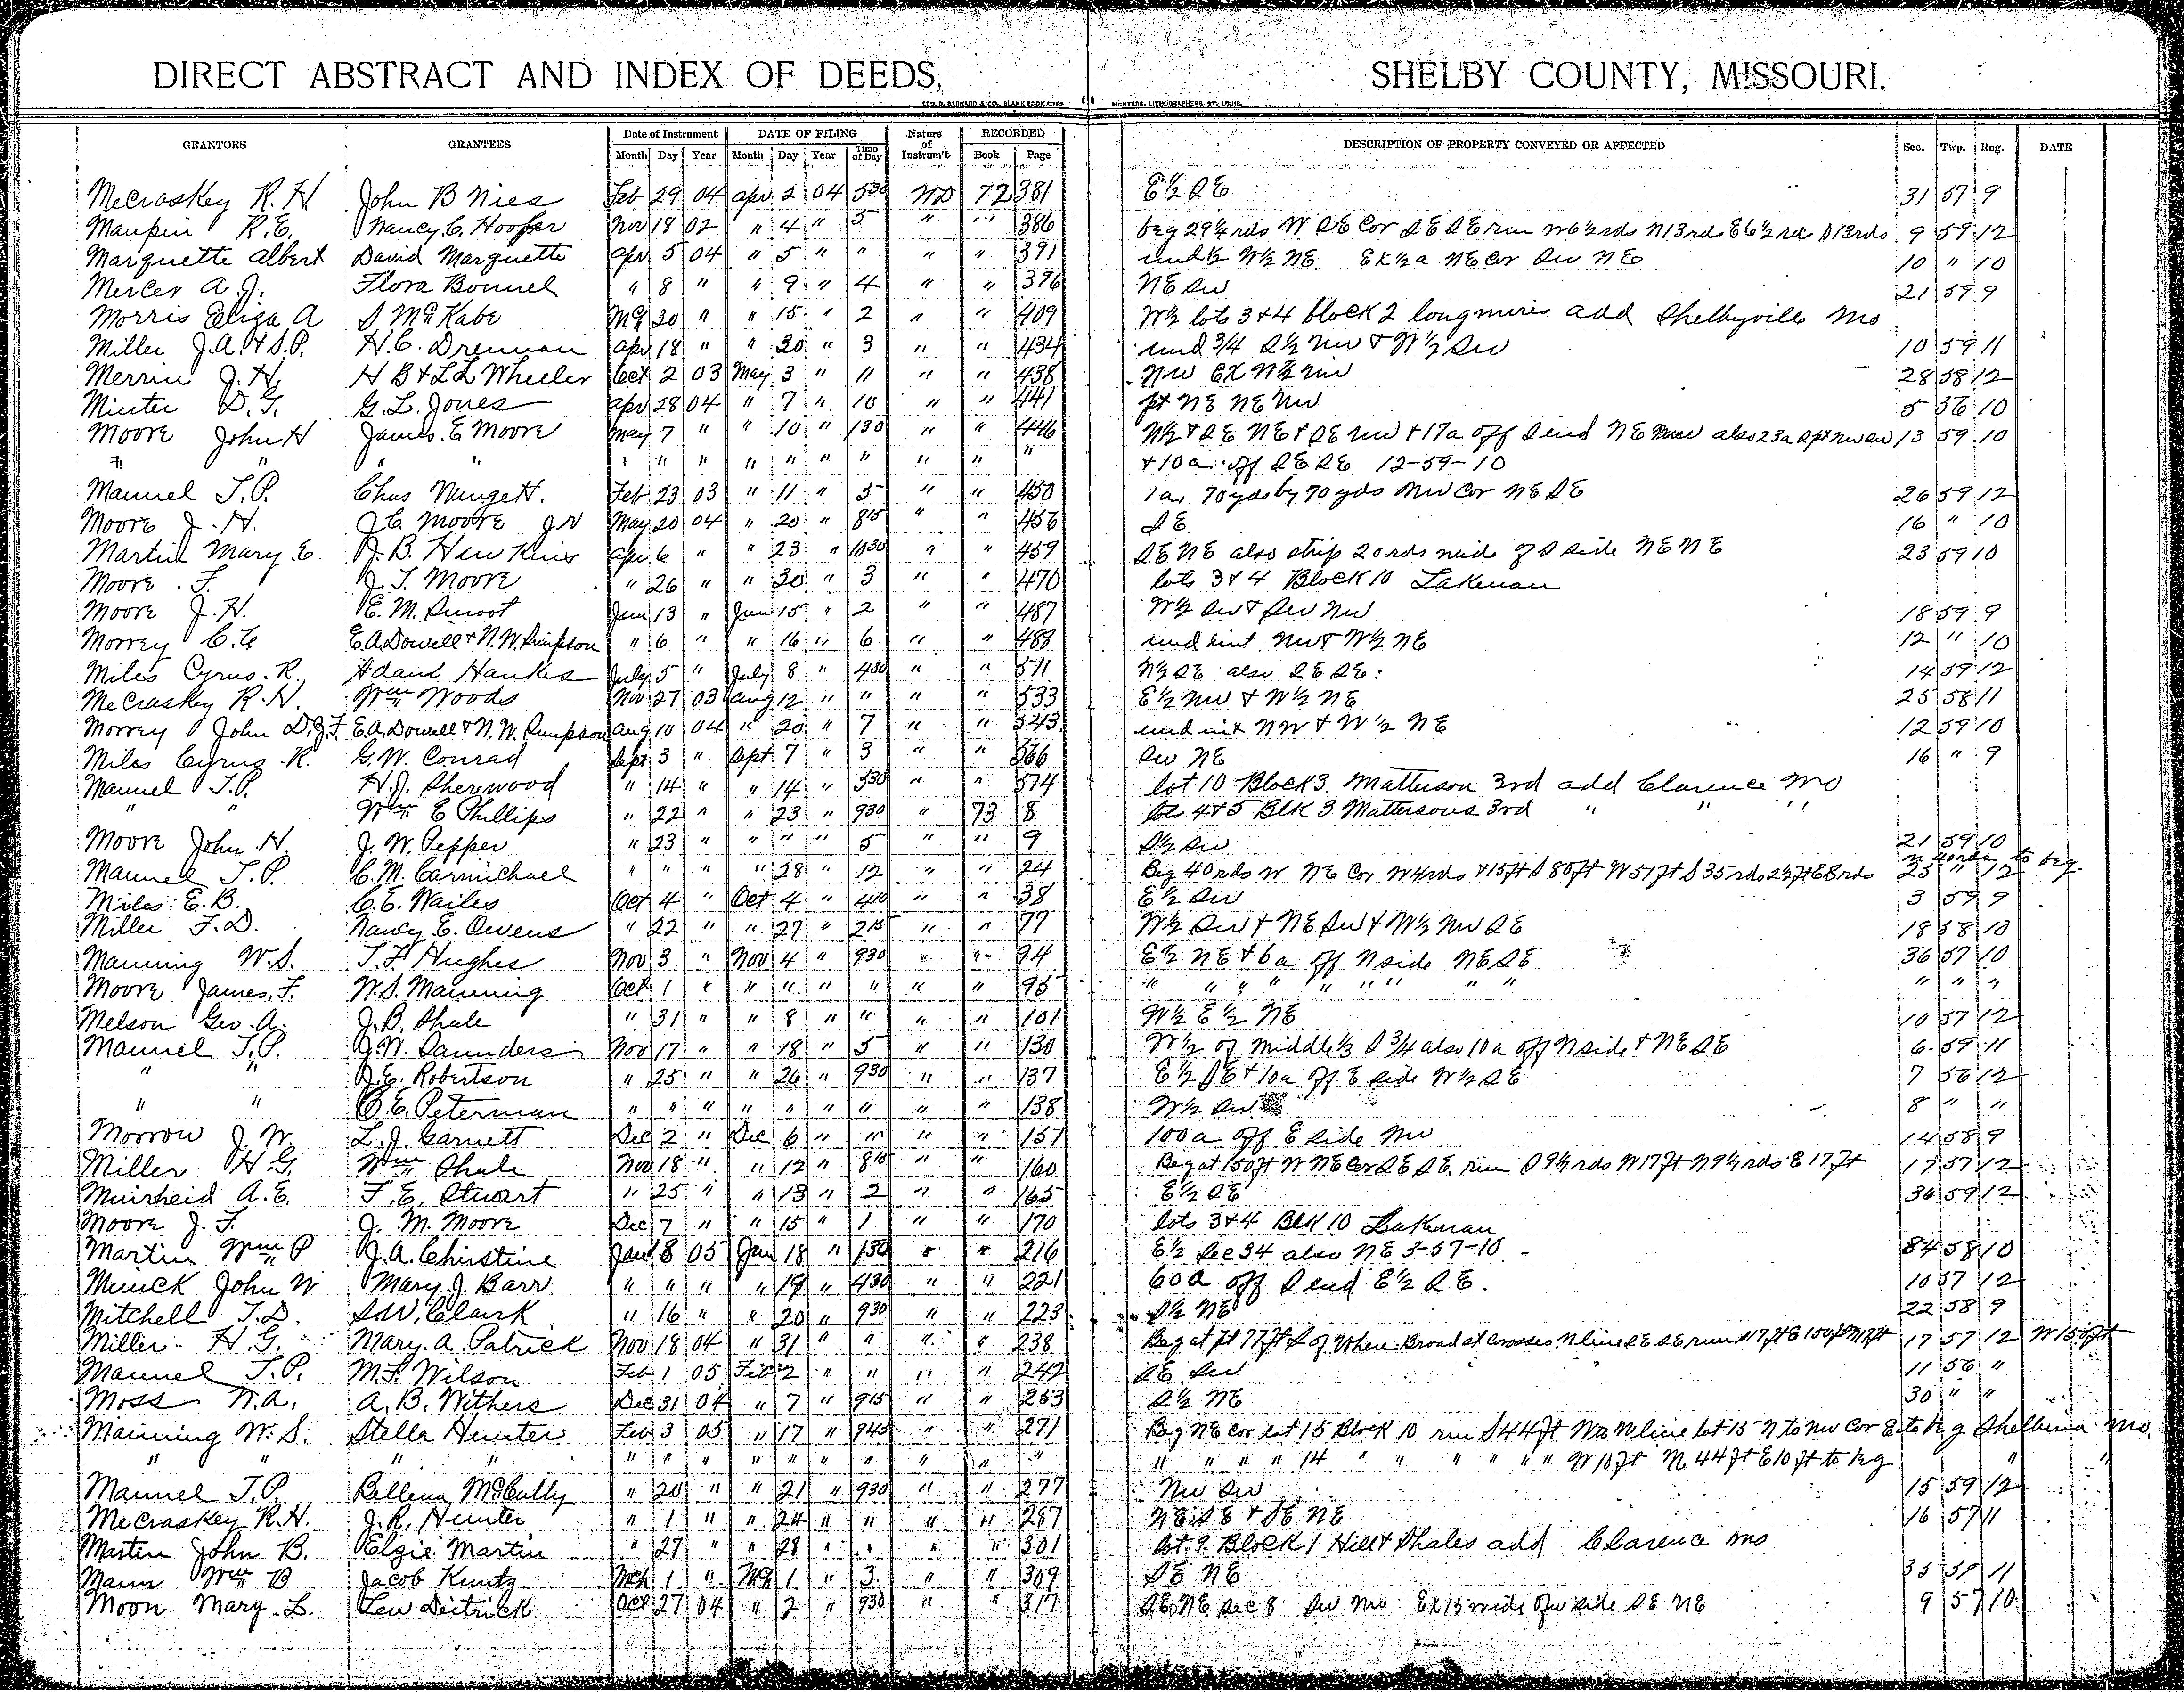 DIRECT ABSTRACT AND INDEX OF DEEDS, SHELBY COUNTY, MISSOURI.
GEO. D. BARNARD & CO., BLANK BOOK MFRS PRINTERS, LITHOGRAPHERS, ST. LOUIS.
GRANTORS GRANTEES Date of Instrument DATE OF FILING Nature of Instrum't RECORDED DESCRIPTION OF PROPERTY CONVEYED OR AFFECTED Sec. Twp. Rng. DATE
Month Day Year Month Day Year Time of Day Book Page
McCraskey R. H. John B Nies Feb 29 04 apr 2 04 530 WD 72 381 E½ SE 31 57 9
Maupin R.E. Nancy C. Hooper Nov 18 02 " 4 " 5 " " 386 beg 29½ rds W SE Cor SE SE run W 6½ rds N 13 rds E 6½ rds S 13 rds 9 59 12
Marquette Albert David Marquette apr 5 04 " 5 " " " " 391 und ½ W½ NE Ex ½ a NE Cor SW NE 10 " 10
Mercer A. J. Flora Bonnel " 8 " " 9 " 4 " " 396 NE SW 21 59 9
Morris Eliza A S McKabe Mch 30 " " 15 " 2 " " 409 W½ lots 3 & 4 block 2 longmires add Shelbyville Mo
Miller J.A. & S.P. H.C. Drennan apr 18 " " 30 " 3 " " 434 und 3/4 S½ NW & N½ SW 10 59 11
Merrin J. H. H B & L L Wheeler Oct 2 03 May 3 " 11 " " 438 NW EX N½ NW 28 58 12
Minter D. G. G. L. Jones apr 28 04 " 7 " 10 " " 441 pt NE NE NW 5 56 10
Moore John H James E Moore May 7 " " 10 " 130 " " 446 N½ & SE NE & SE NW & 17a off S end NE NW also 23a S pt NW SW 13 59 10
" " " " " " " " " " " " " " + 10 a off SE SE 12-59-10
Mannel T. P. Chas Wingett. Feb 23 03 " 11 " 5 " " 450 1 a, 70 yds by 70 yds NW Cor NE SE 26 59 12
Moore J. H. J C Moore Jr May 20 04 " 20 " 815 " " 456 SE 16 " 10
Martin Mary E. J. B. Hawkins apr 6 " " 23 " 1030 " " 459 SE NE also strip 20 rds wide of S side NE NE 23 59 10
Moore F. J. T. Moore " 26 " " 30 " 3 " " 470 lots 3 & 4 Block 10 Lakenan
Moore J. H. E. M. Smoot Jun 13 " Jun 15 " 2 " " 487 W½ SW & SW NW 18 59 9
Morrey C. E. A. Dowell & N. W. Simpson " 6 " " 16 " 6 " " 488 und int NW & W½ NE 12 " 10
Miles Cyrus R. Adam Hawkes July 5 " July 8 " 430 " " 511 N½ SE also SE SE 14 59 12
McCraskey R. H. Wm Woods Nov 27 03 aug 12 " " " " 533 E½ NW & W½ NE 25 58 11
Morrey John D. G. F. E. A. Dowell & N. W. Simpson aug 10 04 " 20 " 7 " " 543 und int NW & W½ NE 12 59 10
Miles Cyrus R. G. W. Conrad Sept 3 " Sept 7 " 3 " " 566 SW NE 16 " 9
Mannel T. P. H. J. Sherwood " 14 " " 14 " 530 " " 574 lot 10 Block 3 Matterson 3rd add Clarence Mo
" " Wm E Phillips " 22 " " 23 " 930 " 73 8 lots 4 & 5 Blk 3 Mattersons 3rd " " "
Moore John H. J. W. Pepper " 23 " " " " 5 " " 9 S½ SW 21 59 10
Mannel T. P. C. M. Carmichael " " " " 28 " 12 " " 24 Beg 40 rds W NE Cor W 4 rds & 15 ft S 80 ft W 51 ft S 35 rds 2½ ft E 8 rds N 40 rds to beg. 25 " 12
Miles E. B. C. E. Wailes Oct 4 " Oct 4 " 410 " " 38 E½ SW 3 59 9
Miller F. D. Nancy E. Owens " 22 " " 27 " 215 " " 77 W½ SW & NE SW & W½ NW SE 18 58 10
Manning W. S. T. F. Hughes Nov 3 " Nov 4 " 930 " " 94 E½ NE & 6a off N side NE SE 36 57 10
Moore James F. W. S. Manning Oct 1 " " " " " " " 95 " " " " " " " " " " " "
Melson Geo. A. J. B. Shale " 31 " " 8 " " " " 101 W½ E½ NE 10 57 12
Mannel T. P. J. W. Saunders Nov 17 " " 18 " 5 " " 130 W½ of middle ⅓ S 3/4 also 10 a off N side & NE SE 6 59 11
" " J. E. Robertson " 25 " " 26 " 930 " " 137 E½ SE & 10a off E side W½ SE 7 56 12
" " C. E. Peterman " " " " " " " " " 138 W½ SW 8 " "
Morrow J. W. L. J. Garnett Dec 2 " Dec 6 " " " " 157 100 a off E side NW 14 58 9
Miller H G. Wm Shale Nov 18 " " 12 " 810 " " 160 Beg at 150 ft W NE Cor SE SE run S 9½ rds W 17 ft N 9½ rds E 17 ft 17 57 12
Muirheid A. E. F. E. Stuart " 25 " " 13 " 2 " " 165 E½ SE 36 59 12
Moore J. F. J. M. Moore Dec 7 " " 15 " 1 " " 170 lots 3 & 4 Blk 10 Lakenan
Martin Wm P J. A. Christine Jan 8 05 Jan 18 " 130 " " 216 E½ Sec 34 also NE 3-57-10 34 58 10
Munck John W Mary J. Barr " " " " 19 " 430 " " 221 60a off S end E½ SE. 10 57 12
Mitchell T. D. S.W. Clark " 16 " " 20 " 930 " " 223 S½ NE 22 58 9
Miller H. G. Mary A. Patrick Nov 18 04 " 31 " " " " 238 Beg at pt 77 ft S of where Broad st crosses N line SE SE run S 17 ft E 150 ft N 17 ft W 150 ft 17 57 12
Mannel T. P. M. F. Wilson Feb 1 05 Feb 2 " " " " 242 SE SW 11 56 "
Moss N. A. A. B. Withers Dec 31 04 " 7 " 915 " " 253 S½ NE 30 " "
Manning W. S. Stella Hunter Feb 3 05 " 17 " 945 " " 271 Beg NE cor lot 15 Block 10 run S 44 ft W to W line lot 15 N to NW Cor E to beg Shelbina Mo.
" " " " " " " " " " " " " " " " " " 14 " " " " " " W 10 ft N 44 ft E 10 ft to beg " "
Mannel T. P. Rellena McCully " 20 " " 21 " 930 " " 277 NW SW 15 59 12
McCraskey R. H. J. R. Hunter " 1 " " 24 " " " " 287 NE SE & SE NE 16 57 11
Martin John B. Elzie Martin " 27 " " 28 " " " " 301 lot 9 Block 1 Hill & Shales add Clarence Mo
Mann Wm B Jacob Kuntz Mch 1 " Mch 1 " 3 " " 309 SE NE 35 59 11
Moon Mary L. Lew Deitrick Oct 27 04 " 2 " 930 " " 317 SE NE Sec 8 SW NW Ex 15 wide of W side SE NE 9 57 10